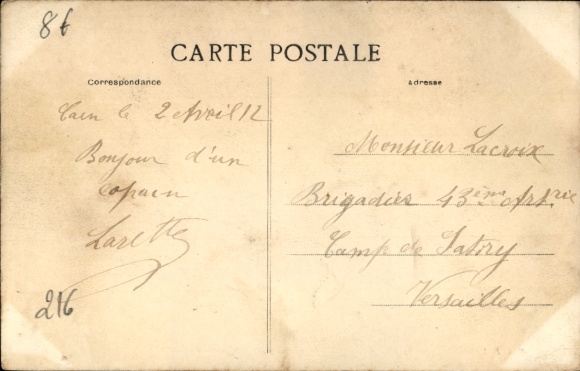 86
CARTE POSTALE
Correspondance
Adresse
Caen le 2 Avril 12
Bonjour d'un
copain
Larette
216
Monsieur Lacroix
Brigadier 43ème Artrie
Camp de Satory
Versailles